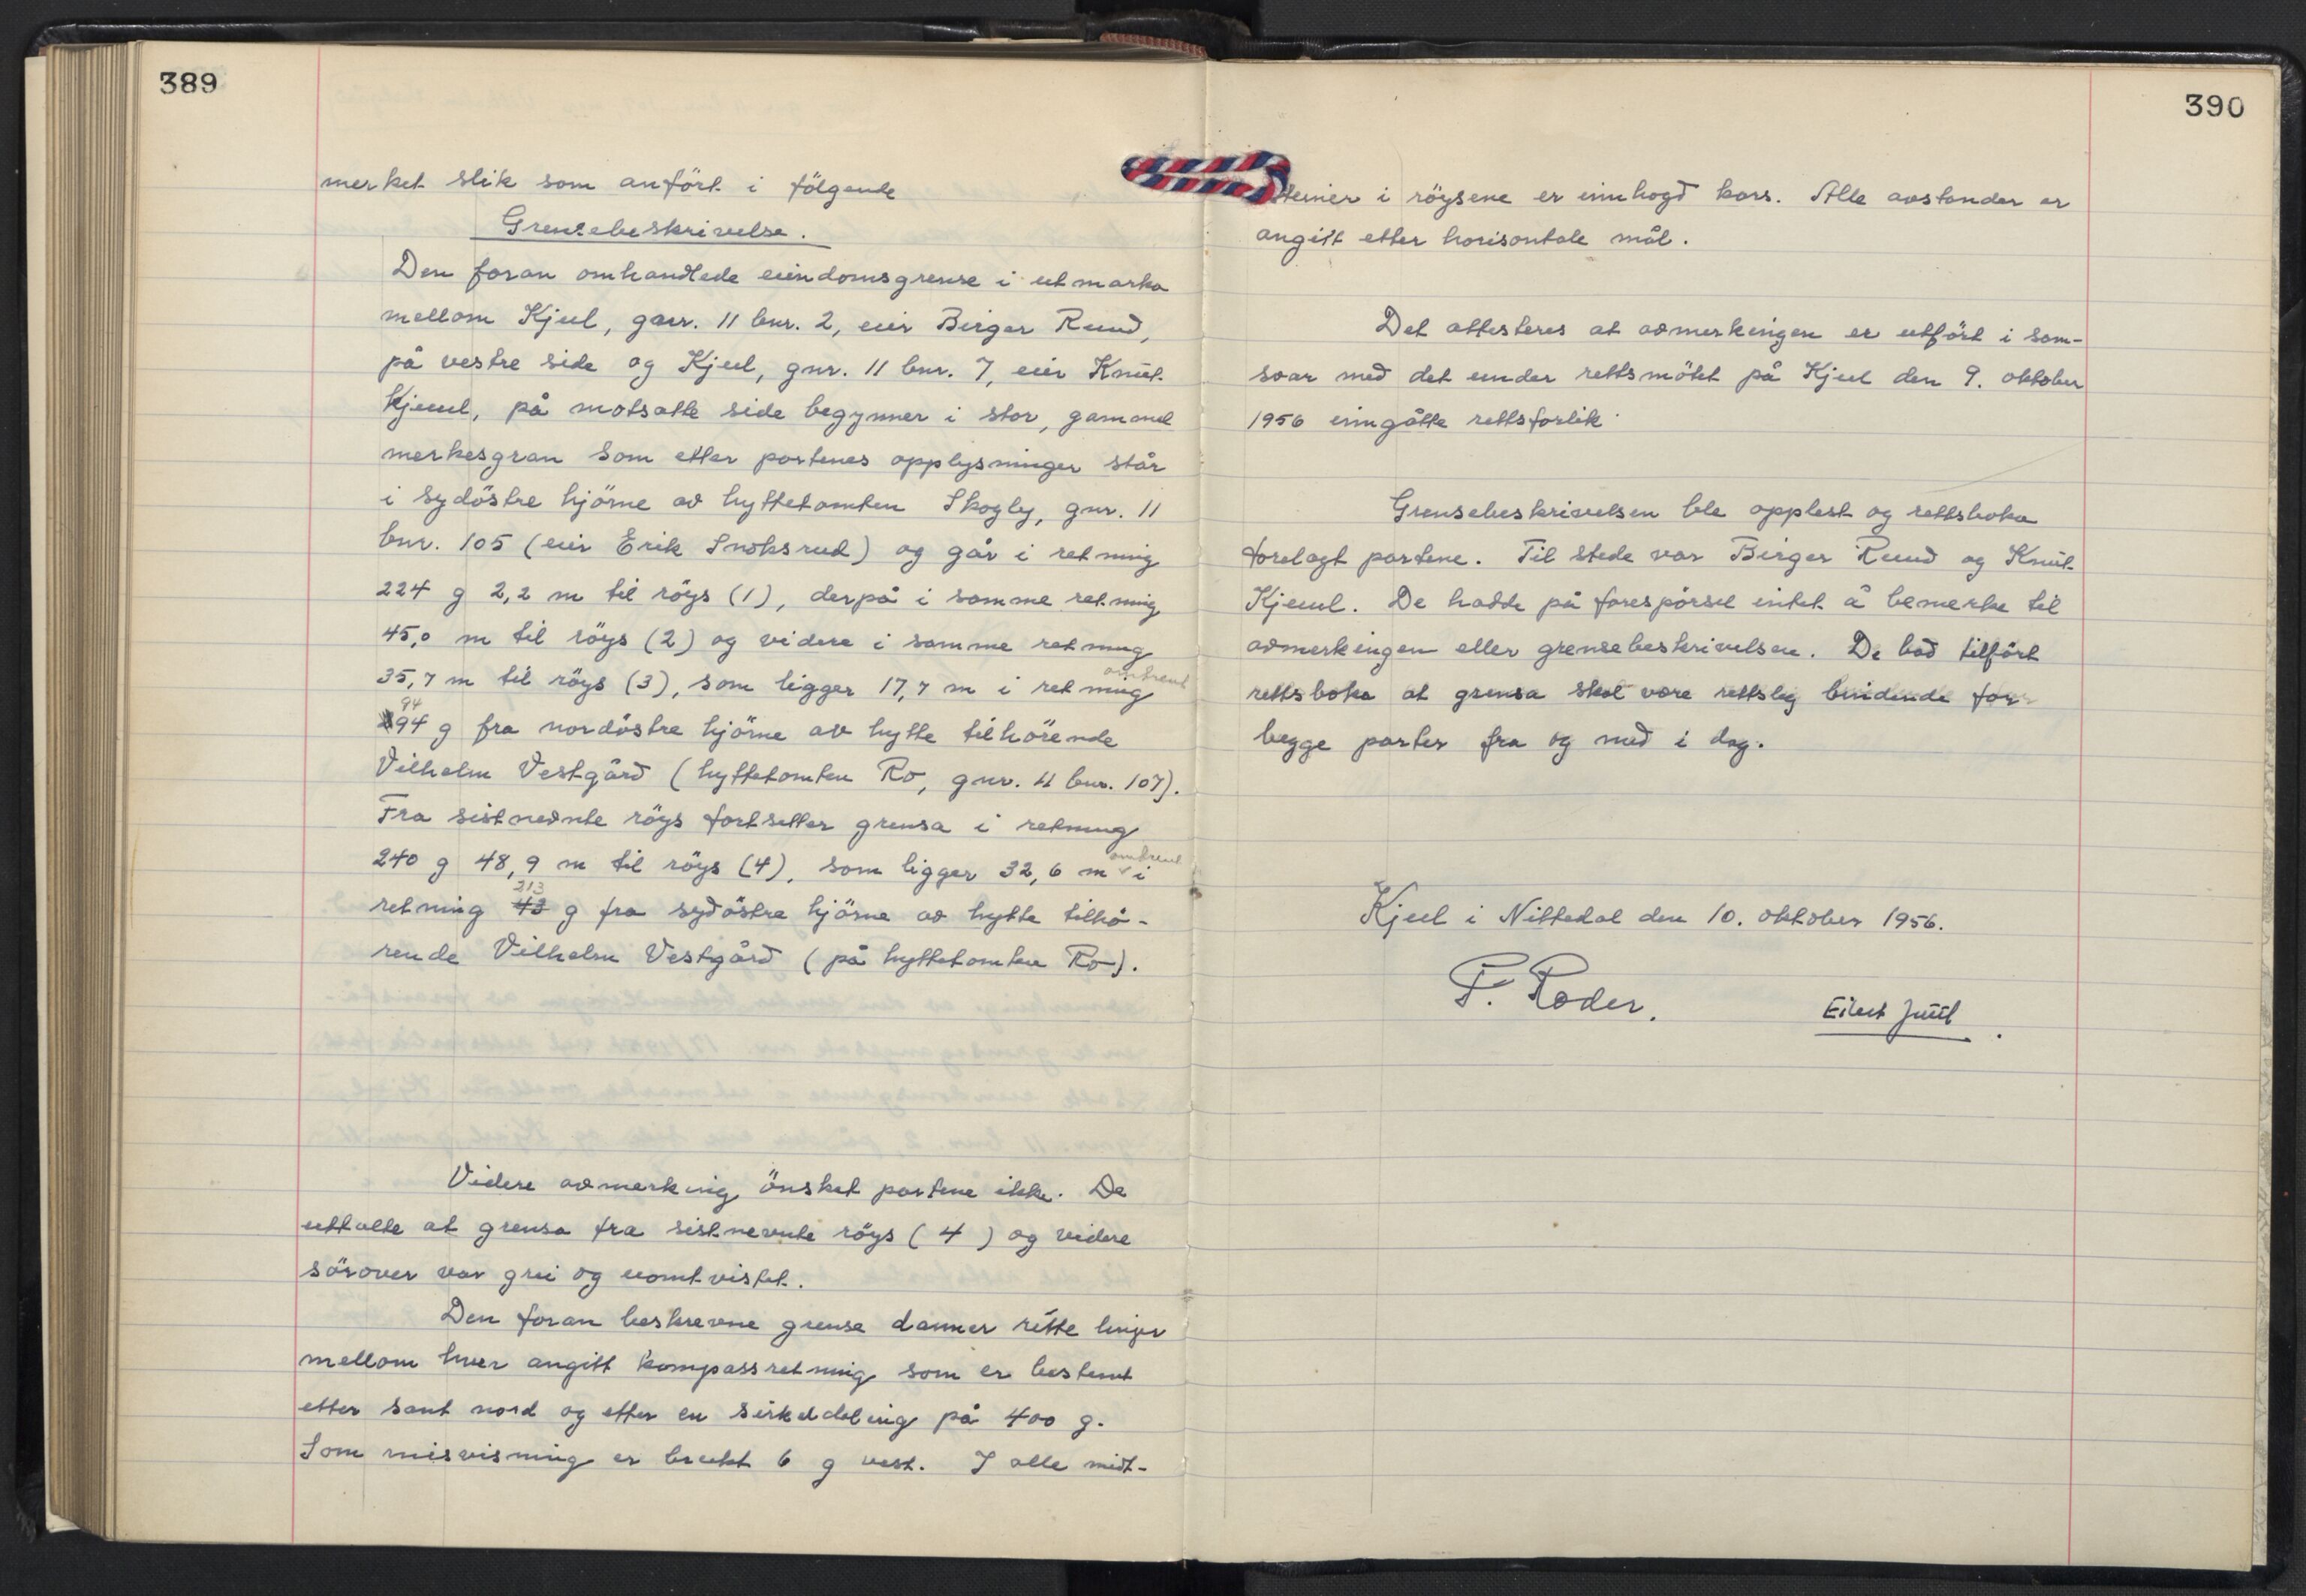 389
merket slik som anfört i fölgende
Grensebeskrivelse.
Den foran omhandlede eiendomsgrense i utmarka
mellom Kjul, gnr. 11 bnr. 2, eier Birger Ruud,
på vestre side og Kjul, gnr. 11 bnr. 7, eier Knut
Kjuul, på motsatte side begynner i stor, gammel
merkesgran som etter partenes opplysninger står
i sydöstre hjörne av hyttetomten Skogly, gnr. 11
bnr. 105 (eier Erik Snoksrud) og går i retning
224 g 2,2 m til röys (1), derpå i samme retning
45,0 m til röys (2) og videre i samme retning
35,7 m til röys (3), som ligger 17,7 m i retning
omtrent
94
94 g fra nordöstre hjörne av hytte tilhörende
Vilhelm Vestgård (hyttetomten Ro, gnr. 11 bnr. 107).
Fra sistnevnte röys fortsetter grensa i retning
240 g 48,9 m til röys (4), som ligger 32,6 m omtrent i
retning 213 g fra sydöstre hjörne av hytte tilhö-
rende Vilhelm Vestgård (på hyttetomten Ro).
Videre avmerking önsket partene ikke. De
uttalte at grensa fra sistnevnte röys (4) og videre
sörover var grei og uomtvistet.
Den foran beskrevne grense danner rette linjer
mellom hver angitt kompassretning som er bestemt
etter sant nord og etter en sirkeldeling på 400 g.
Som misvisning er brukt 6 g vest. I alle midt-
390
steiner i röysene er innhogd kors. Alle avstander er
angitt etter horisontale mål.
Det attesteres at avmerkingen er utfört i sam-
svar med det under rettsmötet på Kjul den 9. oktober
1956 inngåtte rettsforlik.
Grensebeskrivelsen ble opplest og rettsboka
forelagt partene. Til stede var Birger Ruud og Knut
Kjuul. De hadde på forespörsel intet å bemerke til
avmerkingen eller grensebeskrivelsen. De bad tilfört
rettsboka at grensa skal være rettslig bindende for
begge parter fra og med i dag.
Kjul i Nittedal den 10. oktober 1956.
F. Roder.
Eilert Juul.